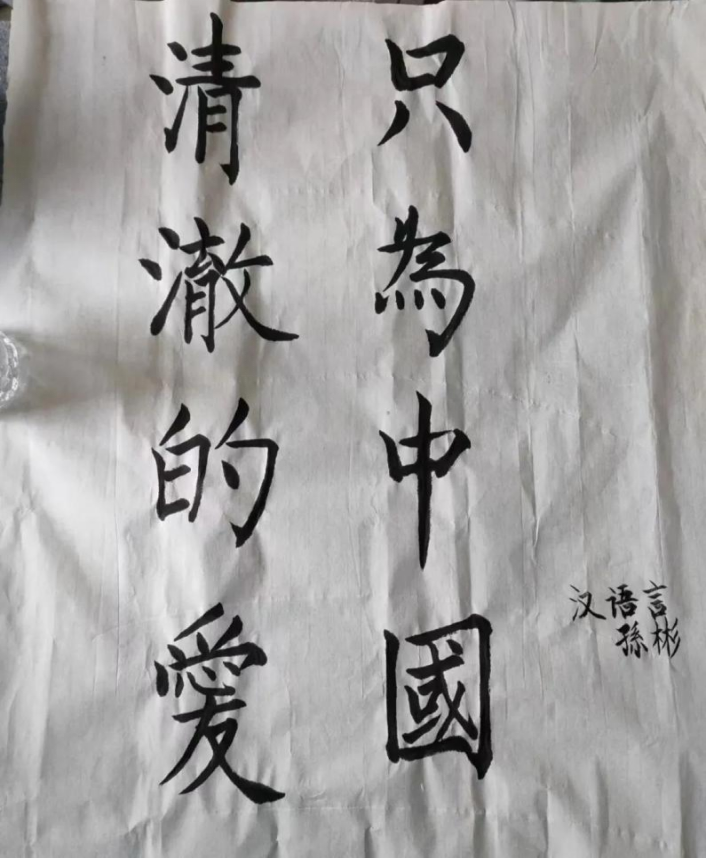 清澈的愛
只為中國
汉语言
孫彬